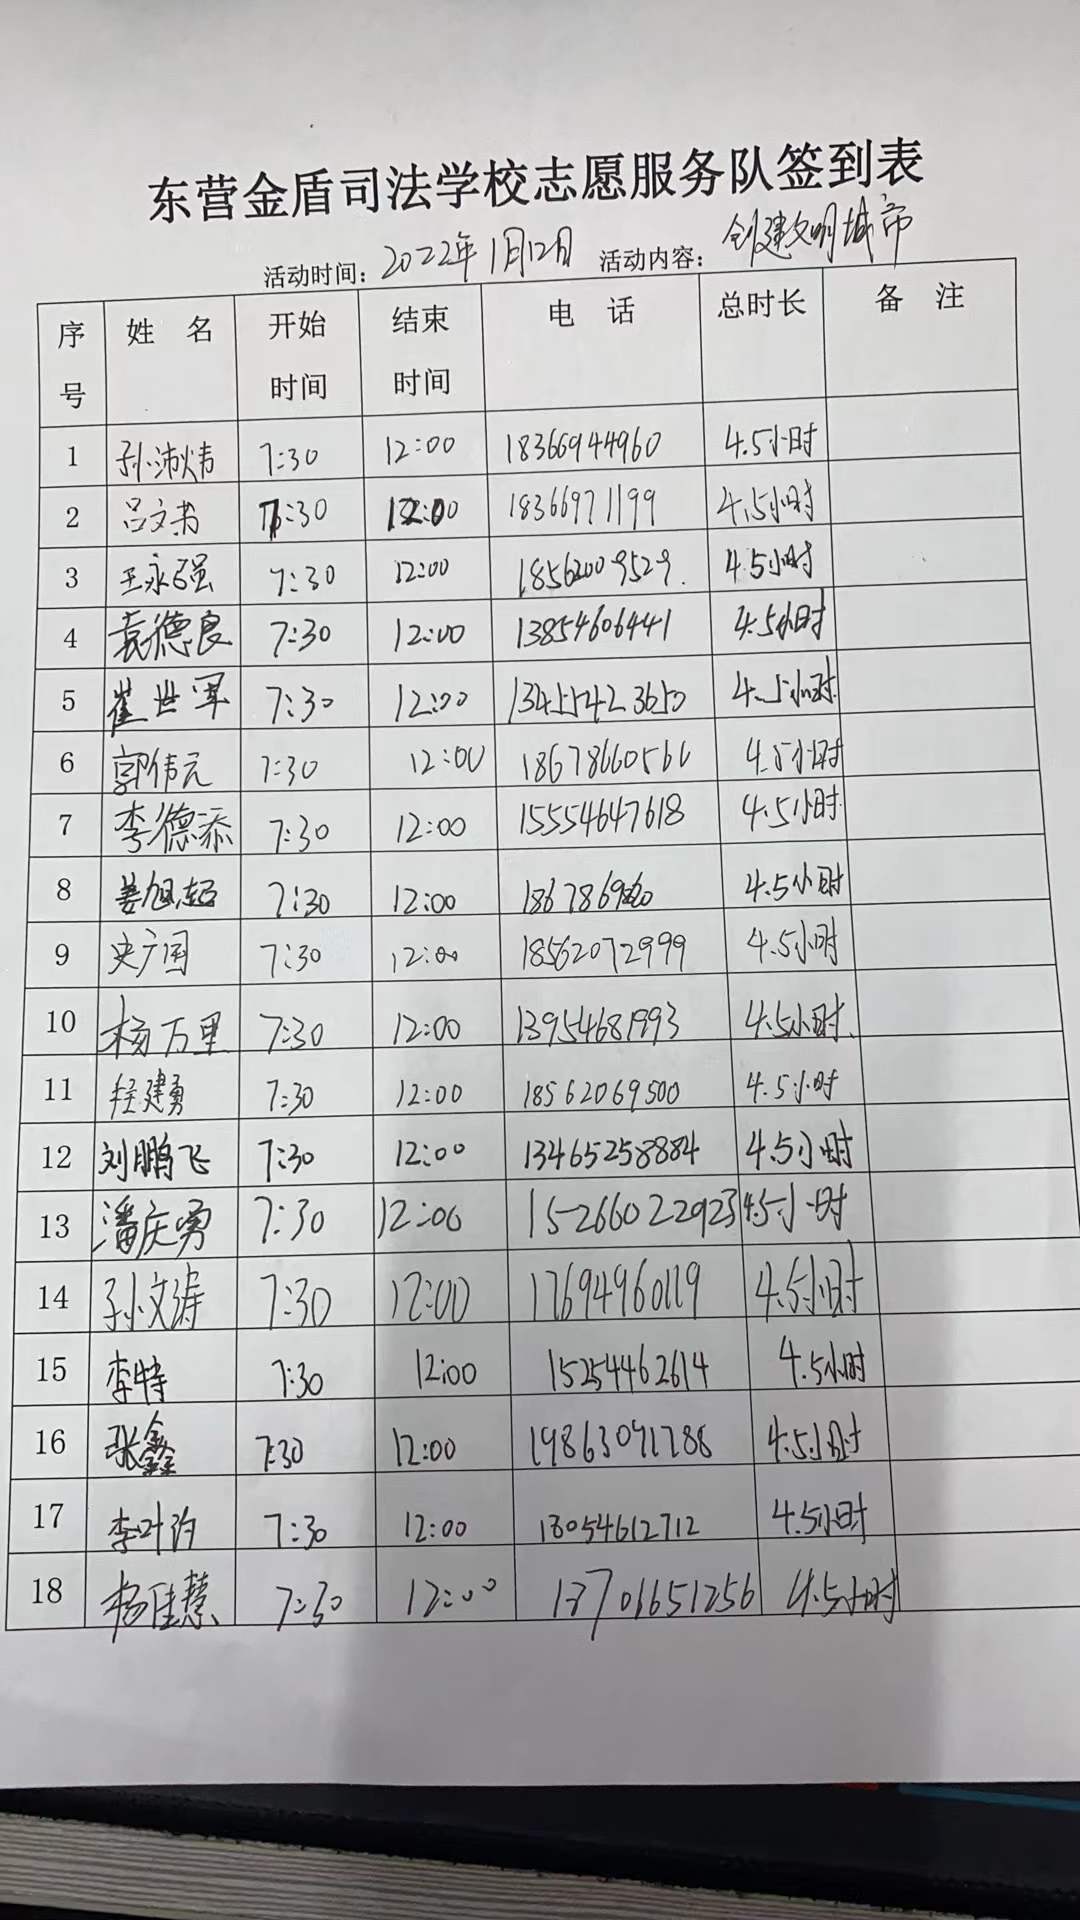 东营金盾司法学校志愿服务队签到表
活动时间：2022年1月12日 活动内容：创建文明城市
序号 姓名 开始时间 结束时间 电话 总时长 备注
1 孙沛炜 7:30 12:00 18366944960 4.5小时
2 吕文书 7:30 12:00 18366971199 4.5小时
3 王永强 7:30 12:00 18562009529 4.5小时
4 袁德良 7:30 12:00 13854606441 4.5小时
5 崔世军 7:30 12:00 13455423650 4.5小时
6 郭伟元 7:30 12:00 18678660566 4.5小时
7 李德添 7:30 12:00 15554647618 4.5小时
8 姜旭超 7:30 12:00 4.5小时
9 史广国 7:30 12:00 18562072999 4.5小时
10 杨万里 7:30 12:00 13954681993 4.5小时
11 程建勇 7:30 12:00 18562069500 4.5小时
12 刘鹏飞 7:30 12:00 13465258884 4.5小时
13 潘庆勇 7:30 12:00 15266022923 4.5小时
14 孙文涛 7:30 12:00 17694960119 4.5小时
15 李特 7:30 12:00 15254462614 4.5小时
16 张鑫 7:30 12:00 19863091288 4.5小时
17 7:30 12:00 13054612712 4.5小时
18 杨佳慧 7:30 12:00 13701651256 4.5小时